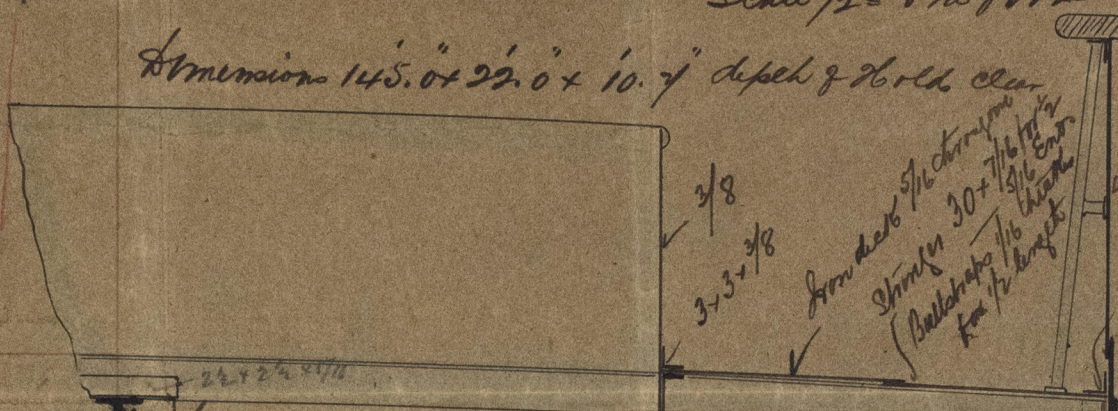 Dimensions 145'.0" x 22'.0" x 10'.
depth of Hold clear
3/8
3 x 3 x 3/8
Iron deck 5/16 throughout
Stringer 30 x 7/16 for 1/2
5/16 Ends
Buttstraps 1/16 thicker
for 1/2 length
2½ x 2½ x 5/16